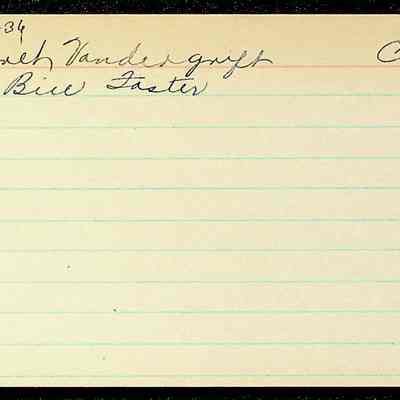 -34
Vandergrift C
Bill Foster